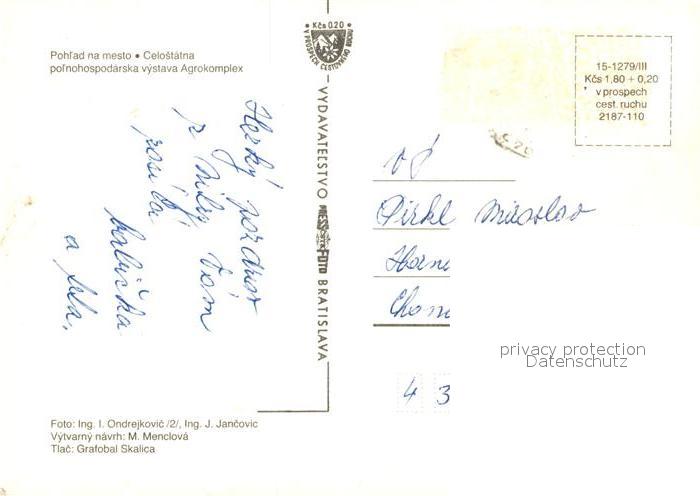 Pohľad na mesto • Celoštátna
poľnohospodárska výstava Agrokomplex
Kčs 0.20
V PROSPECH CESTOVNÉHO RUCHU
15-1279/III
Kčs 1,80 + 0,20
v prospech
cest. ruchu
2187-110
Hezký pozdrav
z Vám
posílá
babička
a
VYDAVATEĽSTVO PRESSFOTO BRATISLAVA
Pirkl Miroslav
Horní
Chom
4 3
privacy protection
Datenschutz
Foto: Ing. I. Ondrejkovič /2/, Ing. J. Jančovic
Výtvarný návrh: M. Menclová
Tlač: Grafobal Skalica